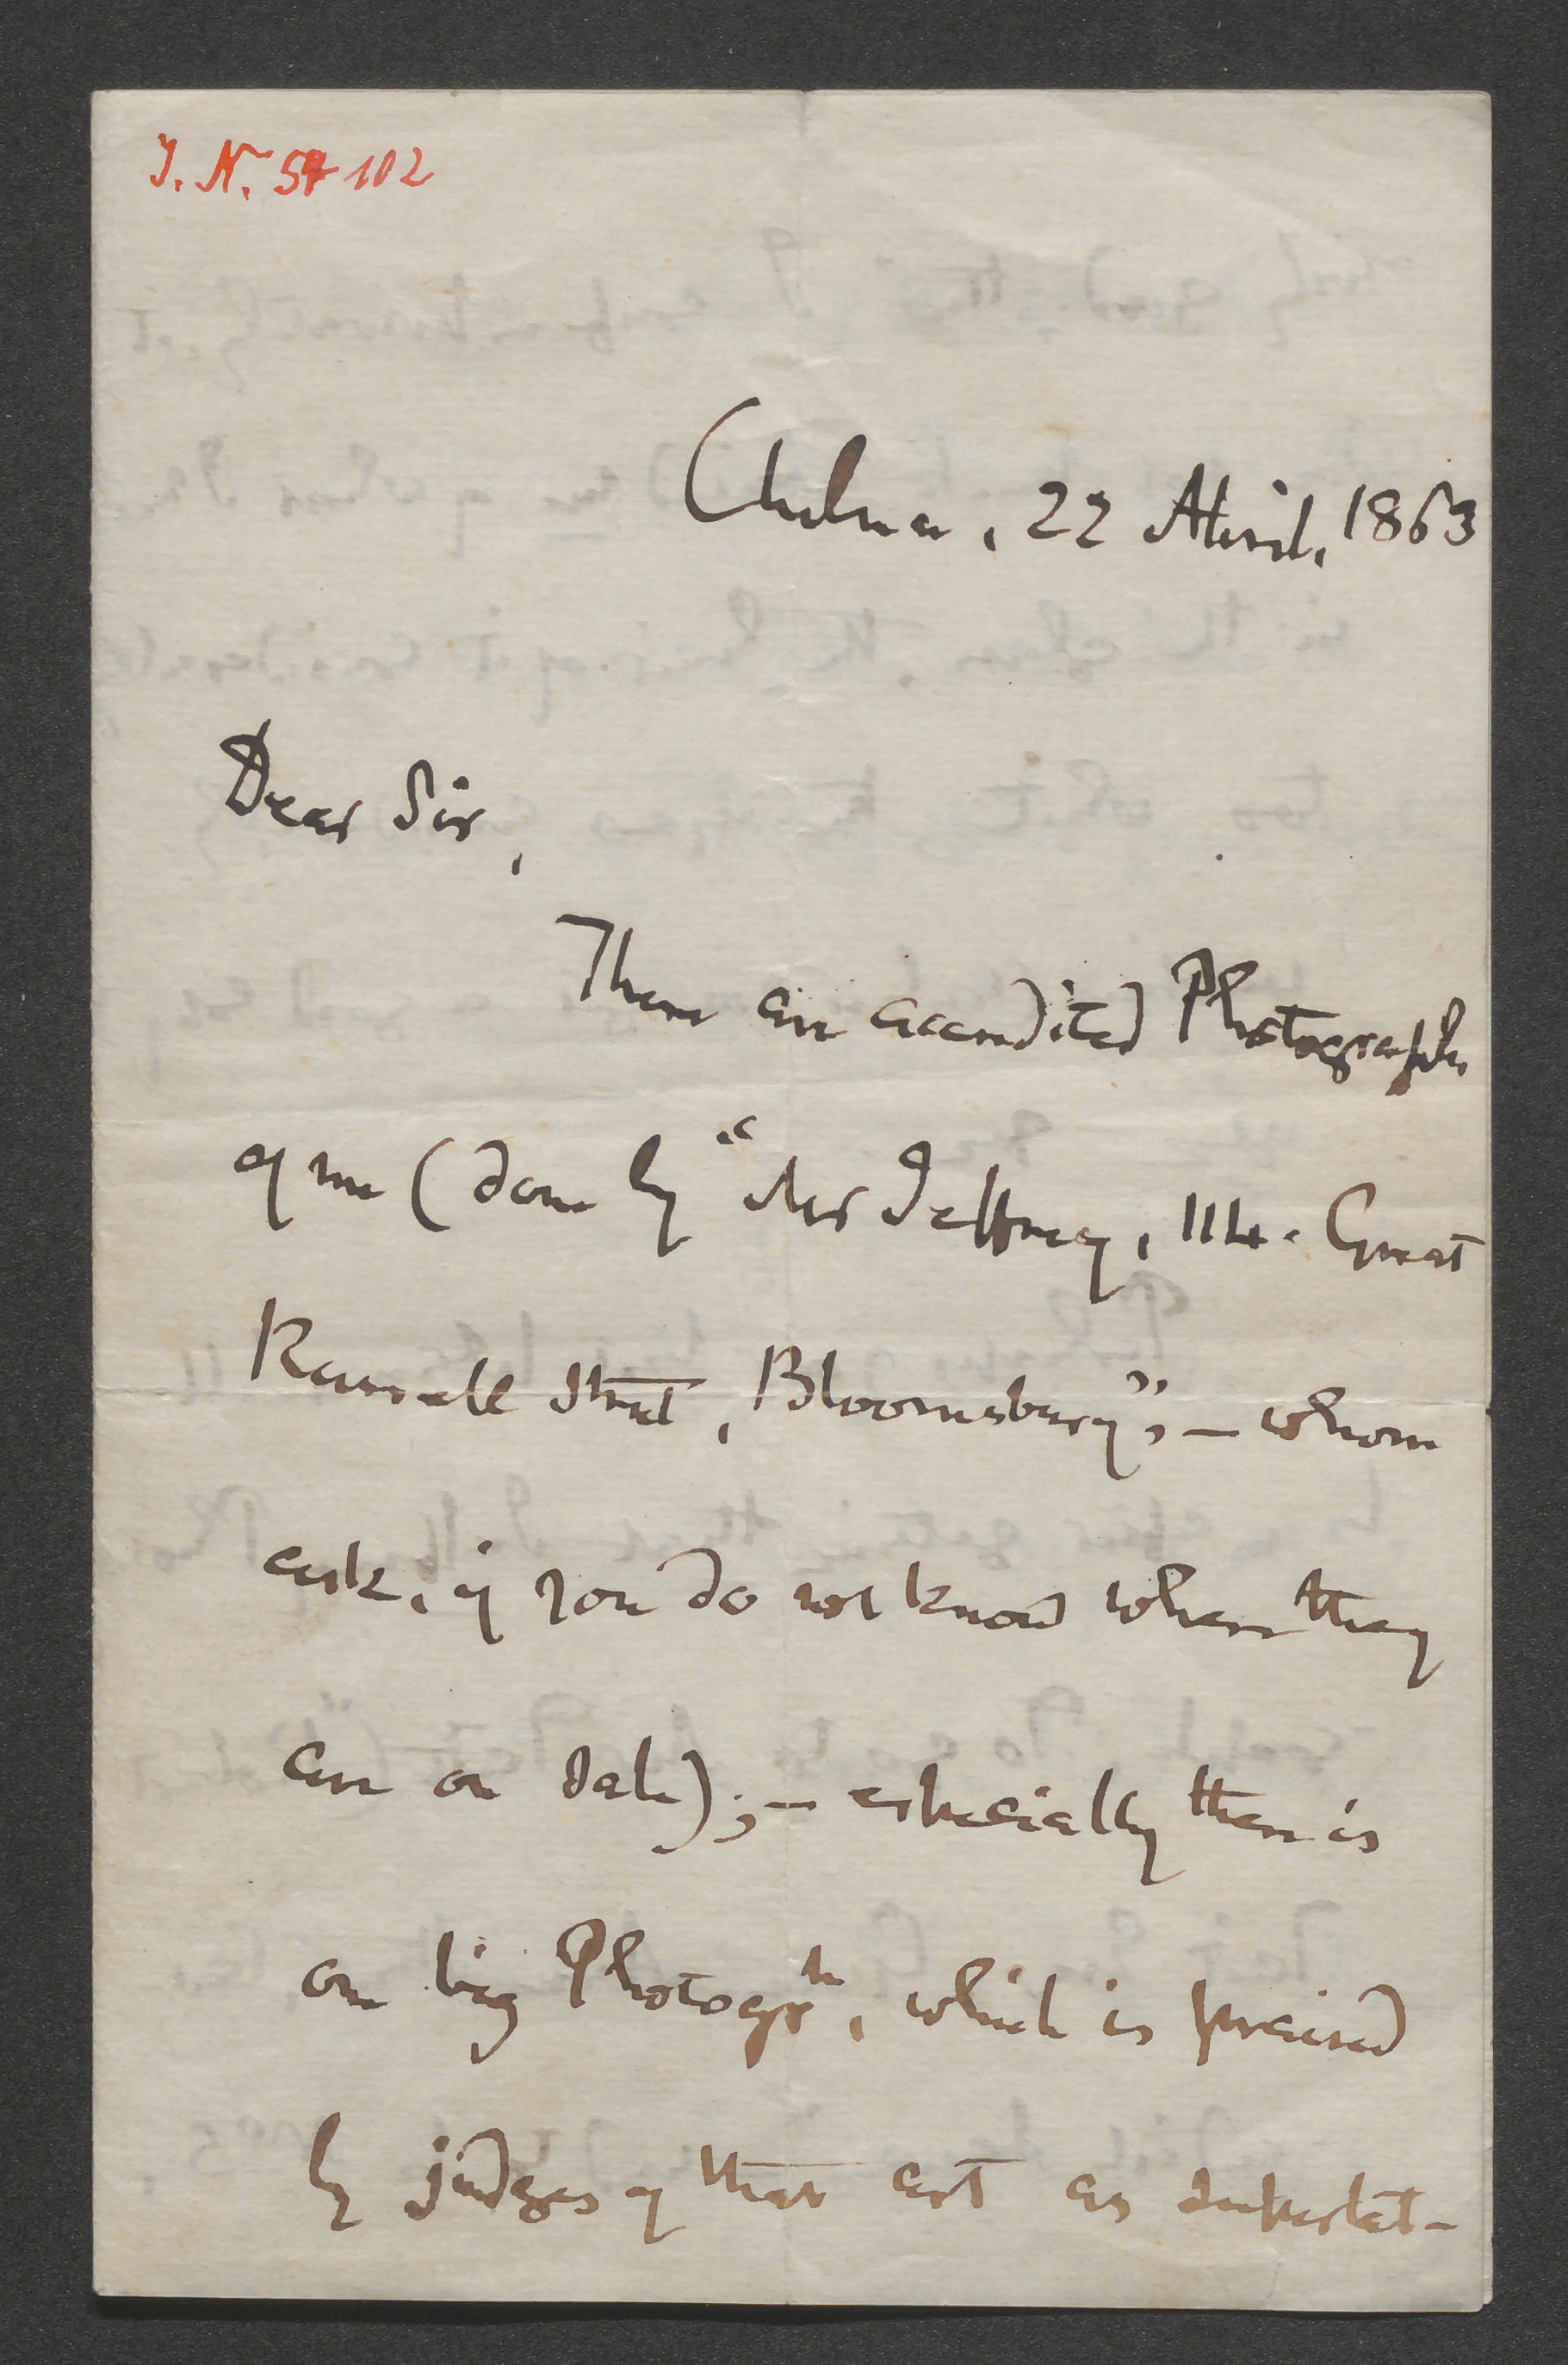 J. N. 57102
Chelsea, 22 April, 1863
Dear Sir,
There are accredited Photographs
of me (done by "Mr Jeffrey, 114. Great
Russell Street, Bloomsbury"; — whom
ask, if you do not know where they
are on sale); — especially there is
one big Photogrh, which is praised
by judges of that art as superlat-